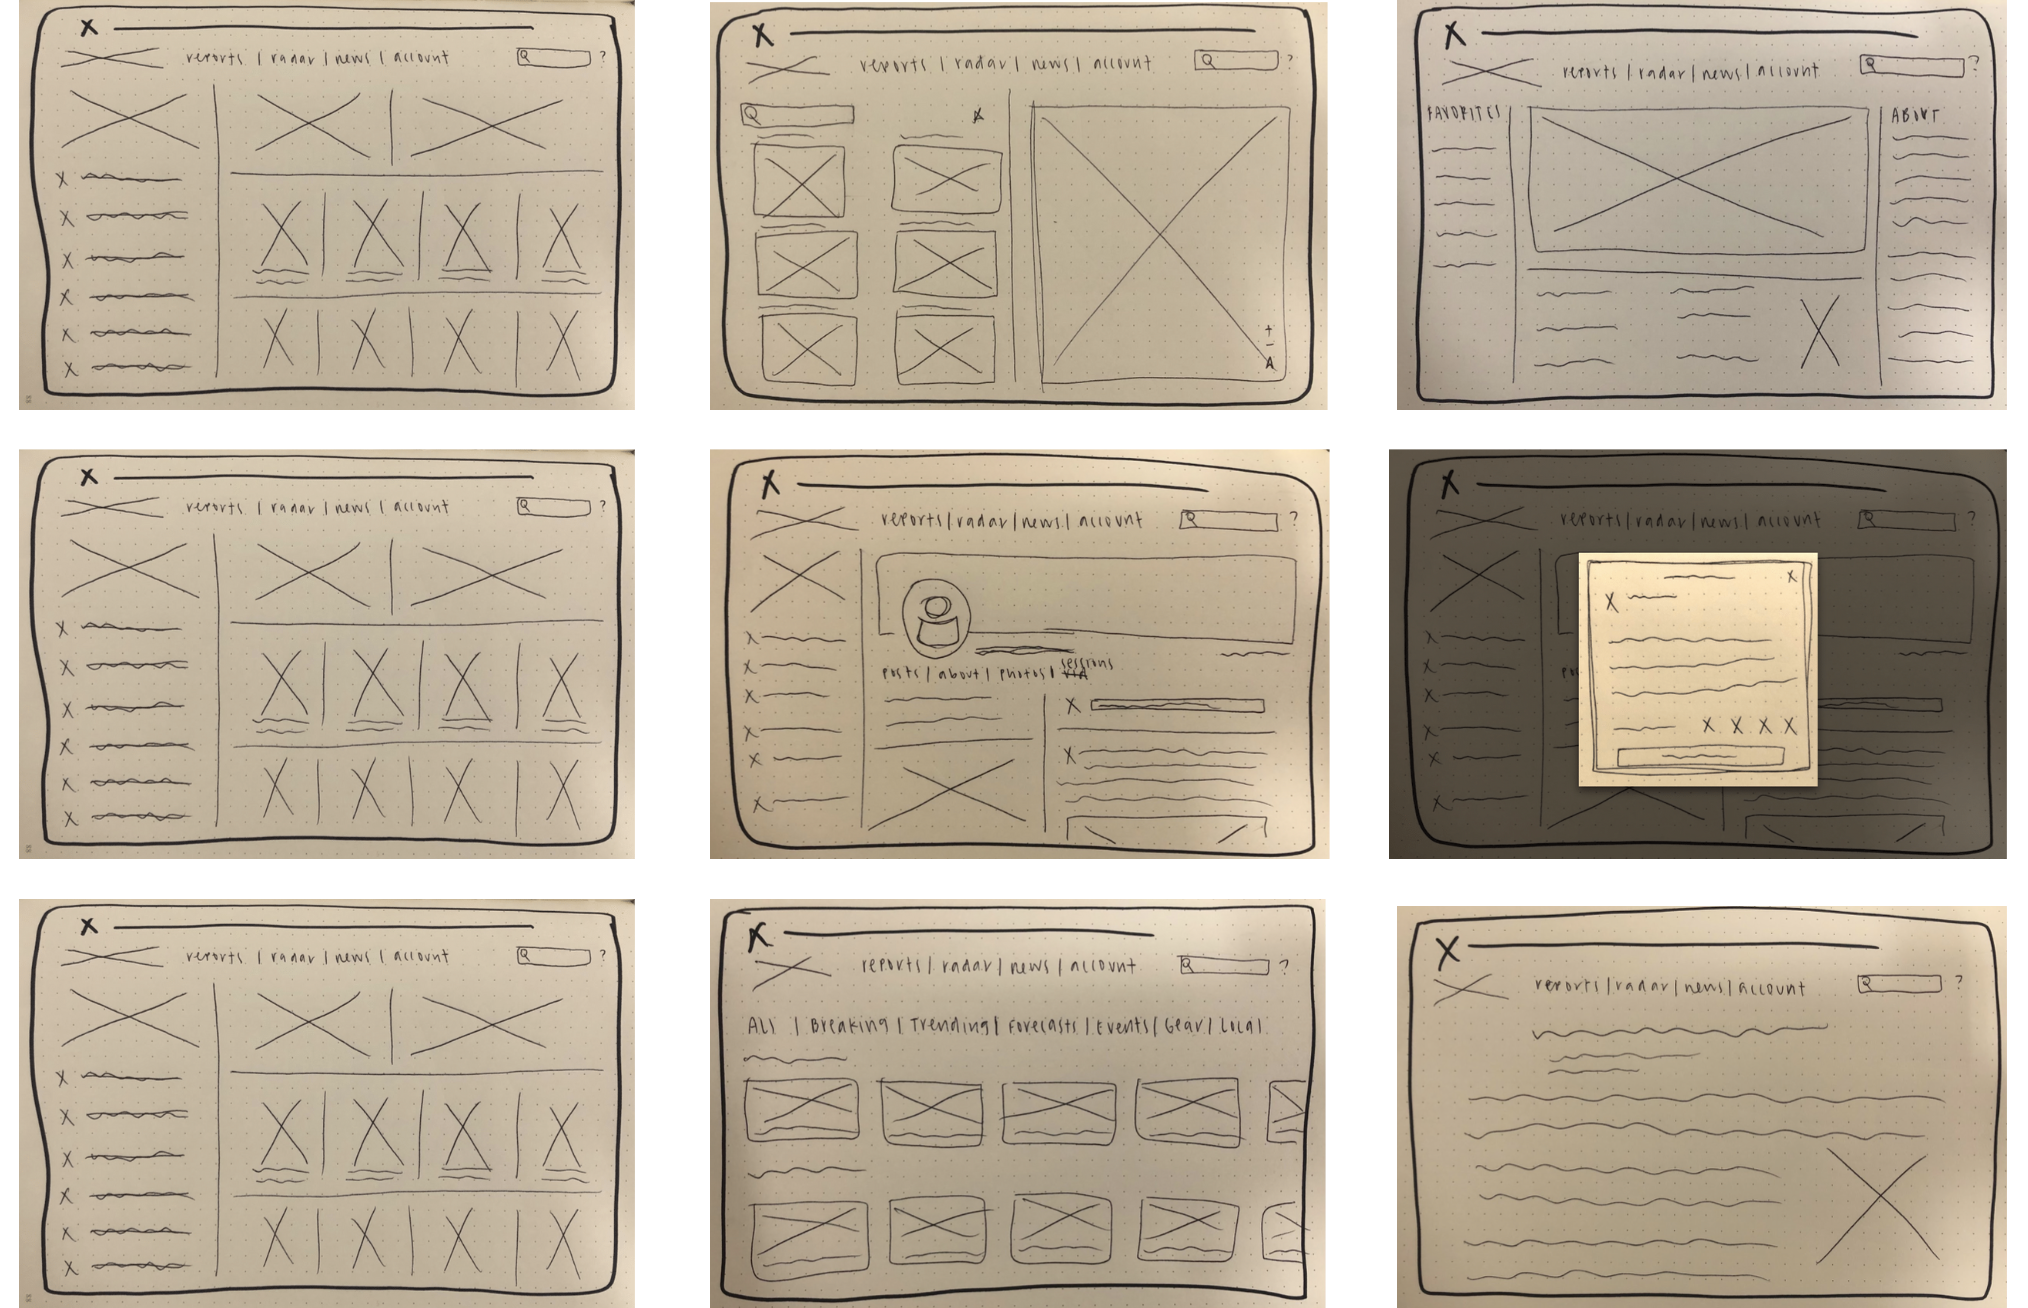 reports | radar | news | account ?
reports | radar | news | account ?
reports | radar | news | account ?
FAVORITES
ABOUT
+
-
A
reports | radar | news | account ?
reports | radar | news | account ?
posts | about | photos | sessions
reports | radar | news | account ?
reports | radar | news | account ?
reports | radar | news | account ?
All | Breaking | Trending | Forecasts | Events | Gear | Local
reports | radar | news | account ?